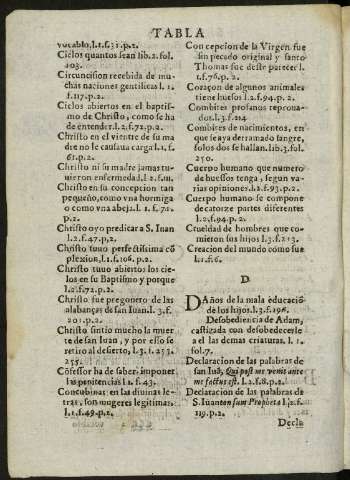 TABLA
vocablo, l.1.f.31.p.2.
Cielos quantos sean lib. 2. fol.
203.
Circuncision recebida de mu-
chas naciones gentilicas l. 1.
f.117.p.2.
Cielos abiertos en el baptis-
mo de Christo, como se ha
de entender. l.2.f.72.p.2.
Christo en el vientre de su ma
dre no le causaua carga l.1.f.
61.p.2.
Christo ni su madre jamas tu-
uieron enfermedad, l.2.f.
Christo en su concepcion tan
pequeño, como vna hormiga
o como vna abeja. l. 1. f. 72.
p.2.
Christo oyo predicar a S. Iuan
l.2.f.47.p.2.
Christo tuuo perfectissima cō
plexion, l.1.f.106. p.2.
Christo tuuo abiertos los cie-
los en su Baptismo y porque
l.2.f.72.p.2.
Christo fue pregonero de las
alabanças de san Iuan. l. 3. f.
201.p.2.
Christo sintio mucho la muer
te de san Iuan, y por esso se
retiro al desierto, l.3. f. 253.
255.
Cōfessor ha de saber imponer
las penitencias l.2. f.43.
Concubinas en las diuinas le-
tras, son mugeres legitimas.
l.1.f.49.p.2.
Concepcion de la Virgen fue
sin pecado original y santo
Thomas fue deste parecer l.
1.f.76.p. 2.
Coraçon de algunos animales
tiene huesos l.2.f.94. p. 2.
Combites profanos reproua-
dos. l.3.f.214
Combites de nacimientos, en
que se aya derramado sangre,
solos dos se hallan. lib. 3. fol.
250.
Cuerpo humano que numero
de huessos tenga, segun va-
rias opiniones. l.2.f.93.p.2.
Cuerpo humano se compone
de catorze partes diferentes
l.2.f.94.p. 2.
Crueldad de hombres que co-
mieron sus hijos l.3.f.213.
Creacion del mundo como fue
l.1.f.6.
D
DAños de la mala educació
de los hijos. l.3.f.196.
Desobediencia de Adam,
castigada con desobedecerle
a el las demas criaturas. l. 1.
fol.7.
Declaracion de las palabras de
san Iuã, Qui post me venit ante
me factus est. l.2.f.8.p.2.
Declaracion de las palabras de
S. Iuan non sum Propheta l.2.f.
119.p.2.
Decla